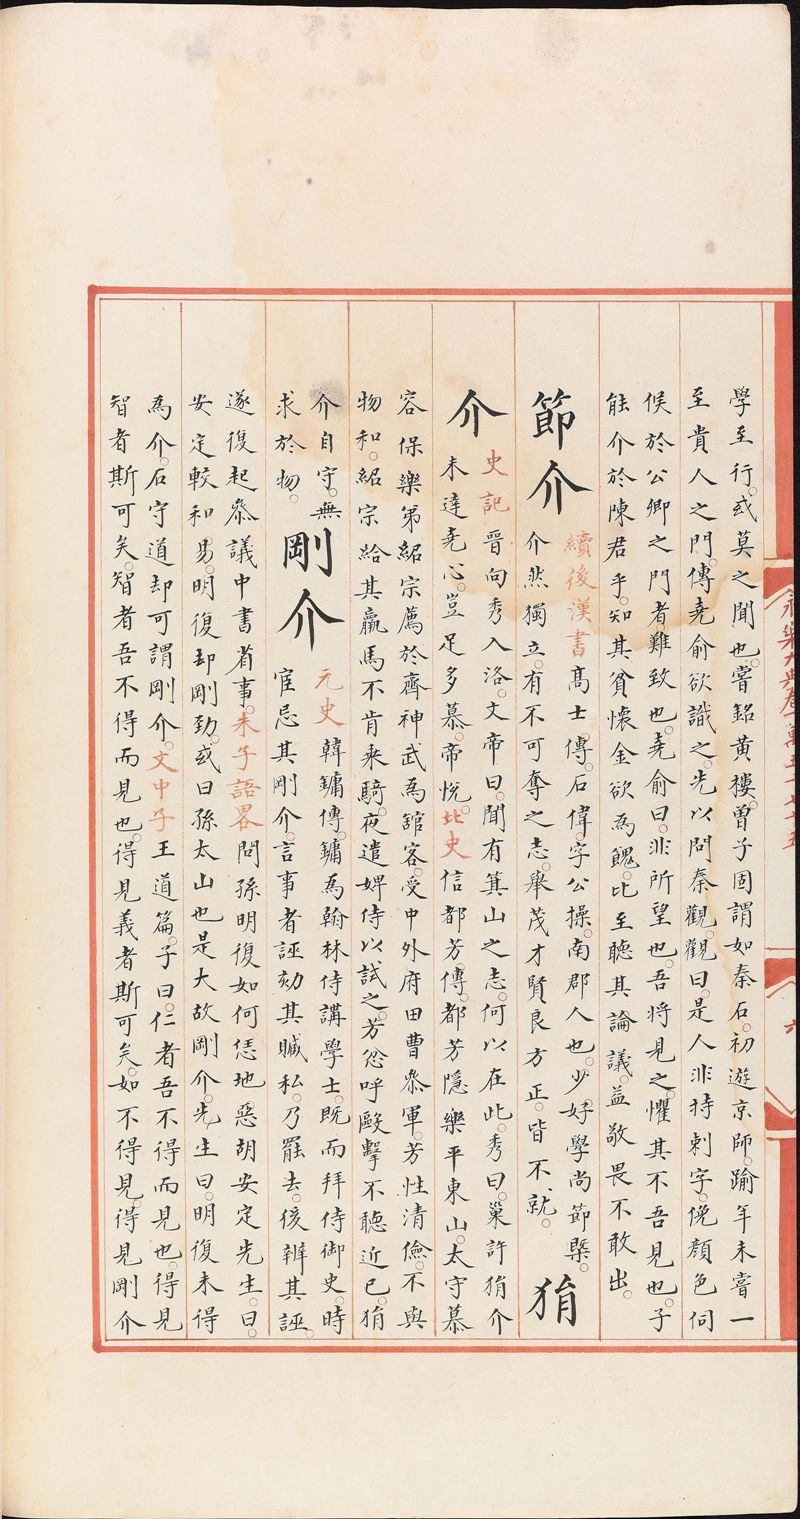 永樂大典卷一萬五千七十五
六
學至行。或莫之聞也。嘗銘黃樓。曾子固謂如秦石。初遊京師。踰年未嘗一
至貴人之門。傅堯俞欲識之。先以問秦觀。觀曰。是人非持刺字。俛顏色伺
候於公卿之門者。難致也。堯俞曰。非所望也。吾將見之。懼其不吾見也。子
能介於陳君乎。知其貧。懷金欲為餽。比至聽其論議。益敬畏不敢出。
節介
續後漢書高士傳。石偉。字公操。南郡人也。少好學尚節槩。
介然獨立。有不可奪之志。舉茂才賢良方正。皆不就。
狷
介
史記晉向秀入洛。文帝曰。聞有箕山之志。何以在此。秀曰。巢許狷介
未達堯心。豈足多慕。帝悅。北史信都芳傳。都芳隱樂平東山。太守慕
容保樂弟紹宗薦於齊神武為館客。受中外府田曹叅軍。芳性清儉。不與
物和。紹宗給其羸馬不肯乘騎。夜遣婢侍以試之。芳忿呼毆擊不聽近已。狷
介自守。無
求於物。
剛介
元史韓鏞傳。鏞為翰林侍講學士。既而拜侍御史。時
宦忌其剛介。言事者誣劾其贓私。乃罷去。後辨其誣。
遂復起叅議中書省事。朱子語畧問孫明復如何恁地惡胡安定先生。曰。
安定較和易。明復却剛勁。或曰孫太山也是大故剛介。先生曰。明復未得
為介。石守道却可謂剛介。文中子王道篇。子曰。仁者吾不得而見也。得見
智者斯可矣。智者吾不得而見也。得見義者斯可矣。如不得見。得見剛介